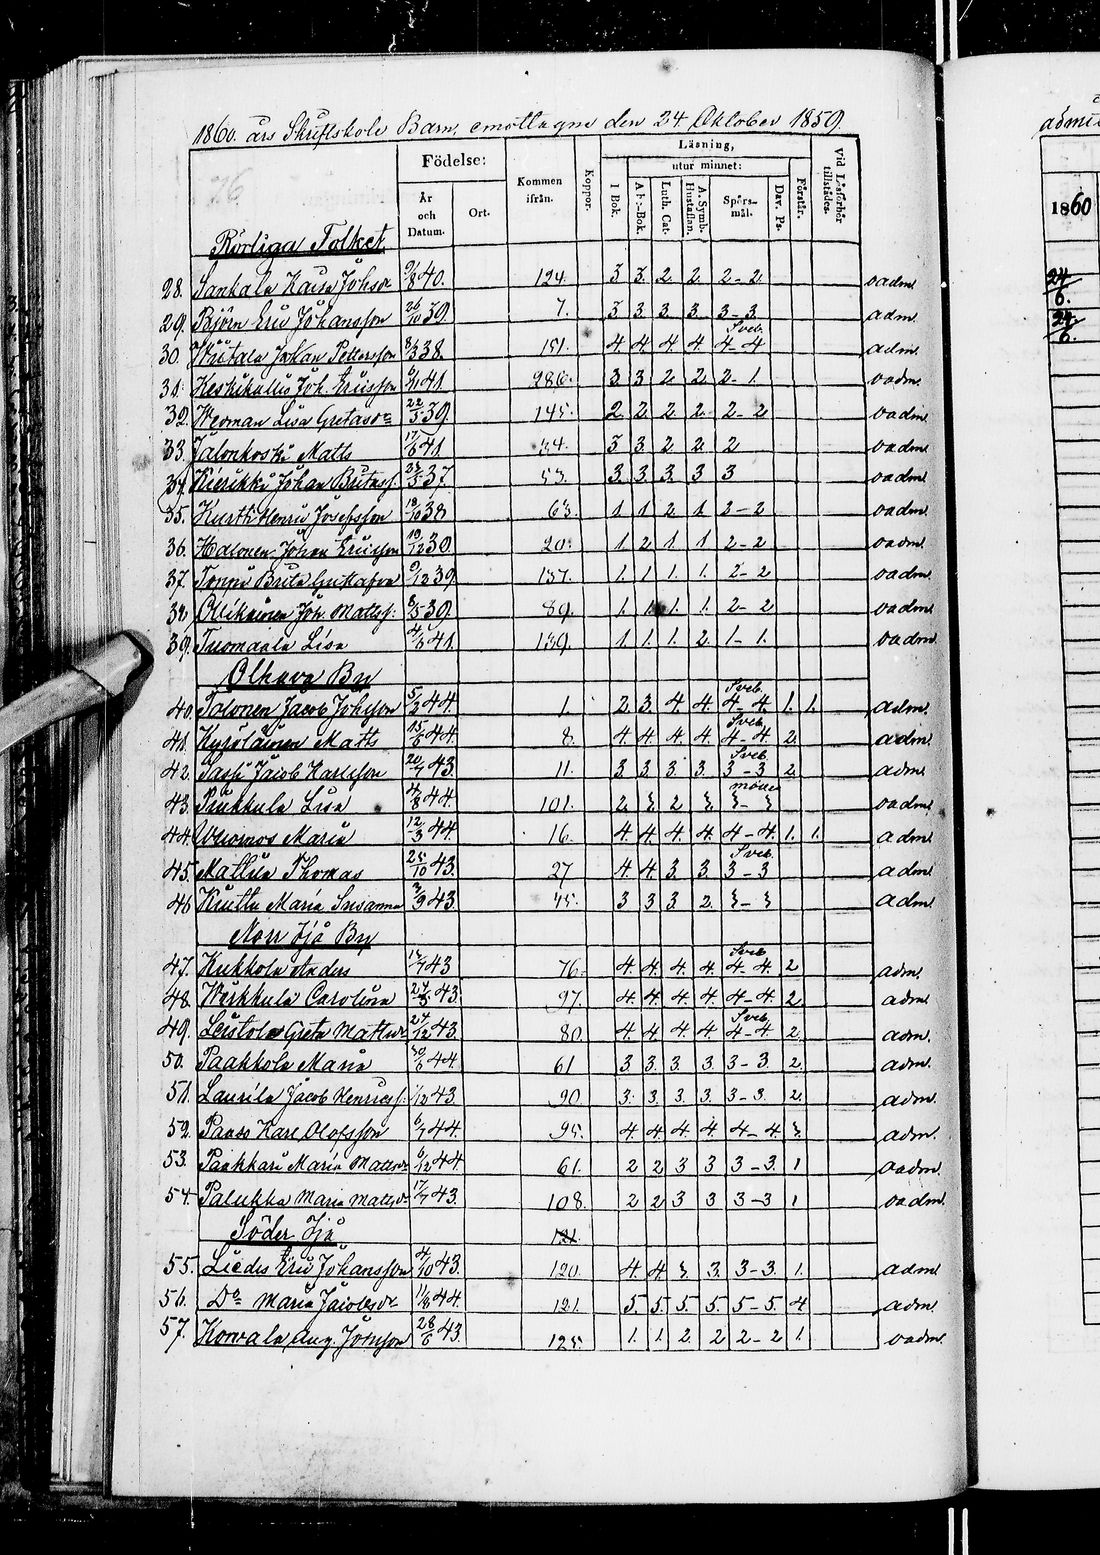 1860. års Skriftskole Barn, emottagne den 24 Oktober 1859.
26
Födelse:
År och Datum.
Ort.
Kommen ifrån.
Koppor.
Läsning,
utur minnet:
I Bok.
Abc-Bok.
Luth. Cat.
A. Symb. Hustaflan.
Spörsmål.
Dav. Ps.
Förstår.
Vid Läsförhör tillstädes.
Rörliga Folket
28. Sankala Kaisa Johsdr 9/8 40. 124. 3 3. 2. 2. 2-2. oadm.
29. Björn Eric Johansson 26/10 39. 7. 3 3 3 3. 3-3. adm.
Sveb.
30. Johan Pettersson 8/3 38. 151. 4. 4. 4. 4. 4-4 adm.
31. Keskikallio Joh. Ericsson 41. 286. 3 3 2 2. 2-1. oadm.
32. Werman Lisa Gretasdr 22/5 39. 145. 2. 2. 2. 2. 2-2 oadm.
33. Jalonkoski Matts 17/6 41. 34. 3 3. 2 2 2 oadm.
34. Kierikki Johan Britass. 37. 53. 3. 3. 3. 3 3 oadm.
35. Kurtti Henric Josefsson 18/10 38 63. 1. 1 2 1. 2-2 oadm.
36. Halonen Johan Ericsson 19/12 39 20. 1. 2 1. 1 2-2 oadm.
37. Brita Gustafsdr 9/12 39 137. 1. 1 1. 1. 2-2 oadm.
38. Ollikainen Joh. Mattss. 8/5 39. 89. 1. 1. 1. 1. 2-2 oadm.
39. Tuomaala Lisa 4/6 41. 139. 1 1. 1. 2 1-1. oadm.
Olhava By
Sveb.
40. Tolonen Jacob Johsson 5/3 44. 1. 2. 3. 4. 4. 4-4. 1. 1. adm.
Sveb.
41. Kyröläinen Matts 15/6 44. 8. 4. 4. 4. 4. 4-4. 2. adm.
Sveb.
42. Sassi Jacob Karlsson 20/7 43. 11. 3 3. 3. 3. 3-3 2. adm.
43. Pirkkula Lisa 4/8 44. 101. 2 3 2 3 3-3 oadm.
44. Wuornos Maria 12/3 44. 16. 4. 4. 4. 4. 4-4. 1. 1. adm.
Sveb.
45. Matlin Thomas 25/10 43. 27 4. 4 3. 3. 3-3 adm.
46 Kruttu Maria Susanna 3/9 43. 45. 3 3 3 2. 3-3 adm.
Norr Ijå By
Sveb
47. Kukkola Anders 43 76. 4. 4. 4. 4. 4-4. 2 adm.
48. Werkkula Carolina 24/8 43. 97. 4. 4. 4. 4. 4-4. 2 adm.
Sveb.
49. Leistola Greta Mattsdr 24/12 43. 80. 4. 4 4 4. 4-4 2. adm.
50. Paakkola Maria 30/6 44. 61 3. 3. 3. 3 3-3. 2. adm.
51. Laurila Jacob Henricss. 1/12 43. 90. 3. 3. 3. 3. 3-3. 2. adm.
52. Paaso Karl Olofsson 6/7 44. 95. 4. 4. 4. 4. 4-4. 3. adm.
53. Paakkari Maria Mattsdr 6/12 44. 61. 2 2 3 3 3-3. 1 oadm.
54. Palukka Maria Mattsdr 17/7 43. 108. 2 2 3 3 3-3 1 oadm.
Söder Ijå 121.
55. Liedes Eric Johansson 4/10 43. 120. 4. 4 3. 3. 3-3. 1. adm.
56. Do Maria Jacobsdr 11/8 44. 121. 5. 5. 5. 5. 5-5. 4 adm.
57. Konvala Aug. Johnson 28/6 43. 125. 1. 1. 2. 2 2-2 1. oadm.
1860
24/6.
24/6.